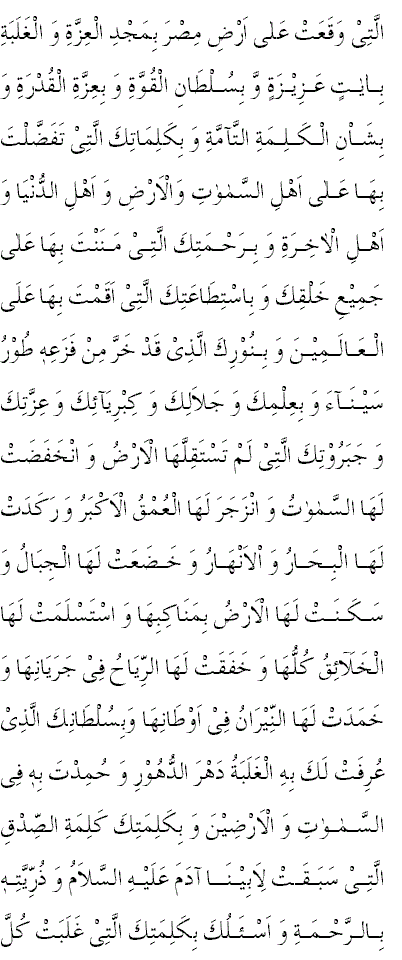 الَّتِيْ وَقَعَتْ عَلٰى اَرْضِ مِصْرَ بِمَجْدِ الْعِزَّةِ وَ الْغَلَبَةِ
بِاٰيٰتٍ عَزِيْزَةٍ وَّ بِسُلْطَانِ الْقُوَّةِ وَ بِعِزَّةِ الْقُدْرَةِ وَ
بِشَاْنِ الْكَلِمَةِ التَّآمَّةِ وَ بِكَلِمَاتِكَ الَّتِيْ تَفَضَّلْتَ
بِهَا عَلٰى اَهْلِ السَّمٰوٰتِ وَالْاَرْضِ وَ اَهْلِ الدُّنْيَا وَ
اَهْلِ الْاٰخِرَةِ وَ بِرَحْمَتِكَ الَّتِيْ مَنَنْتَ بِهَا عَلٰى
جَمِيْعِ خَلْقِكَ وَ بِاسْتِطَاعَتِكَ الَّتِيْ اَقَمْتَ بِهَا عَلَى
الْعَالَمِيْنَ وَ بِنُوْرِكَ الَّذِيْ قَدْ خَرَّ مِنْ فَزَعِهٖ طُوْرُ
سَيْنَآءَ وَ بِعِلْمِكَ وَ جَلَالِكَ وَ كِبْرِيَآئِكَ وَ عِزَّتِكَ
وَ جَبَرُوْتِكَ الَّتِيْ لَمْ تَسْتَقِلَّهَا الْاَرْضُ وَ انْخَفَضَتْ
لَهَا السَّمٰوٰتُ وَ انْزَجَرَ لَهَا الْعُمْقُ الْاَكْبَرُ وَ رَكَدَتْ
لَهَا الْبِحَارُ وَ الْاَنْهَارُ وَ خَضَعَتْ لَهَا الْجِبَالُ وَ
سَكَنَتْ لَهَا الْاَرْضُ بِمَنَاكِبِهَا وَ اسْتَسْلَمَتْ لَهَا
الْخَلَآئِقُ كُلُّهَا وَ خَفَقَتْ لَهَا الرِّيَاحُ فِيْ جَرَيَانِهَا وَ
خَمَدَتْ لَهَا النِّيْرَانُ فِيْ اَوْطَانِهَا وَبِسُلْطَانِكَ الَّذِيْ
عُرِفَتْ لَكَ بِهِ الْغَلَبَةُ دَهْرَ الدُّهُوْرِ وَ حُمِدْتَ بِهٖ فِى
السَّمٰوٰتِ وَ الْاَرْضِيْنَ وَ بِكَلِمَتِكَ كَلِمَةِ الصِّدْقِ
الَّتِيْ سَبَقَتْ لِاَبِيْنَا آدَمَ عَلَيْهِ السَّلَامُ وَ ذُرِّيَّتِهٖ
بِالرَّحْمَةِ وَ اَسْئَلُكَ بِكَلِمَتِكَ الَّتِيْ غَلَبَتْ كُلَّ